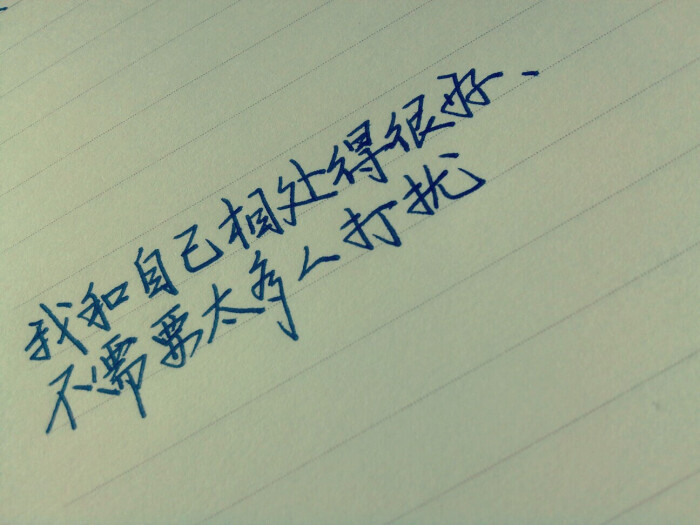 我和自己相处得很好、
不需要太多人打扰